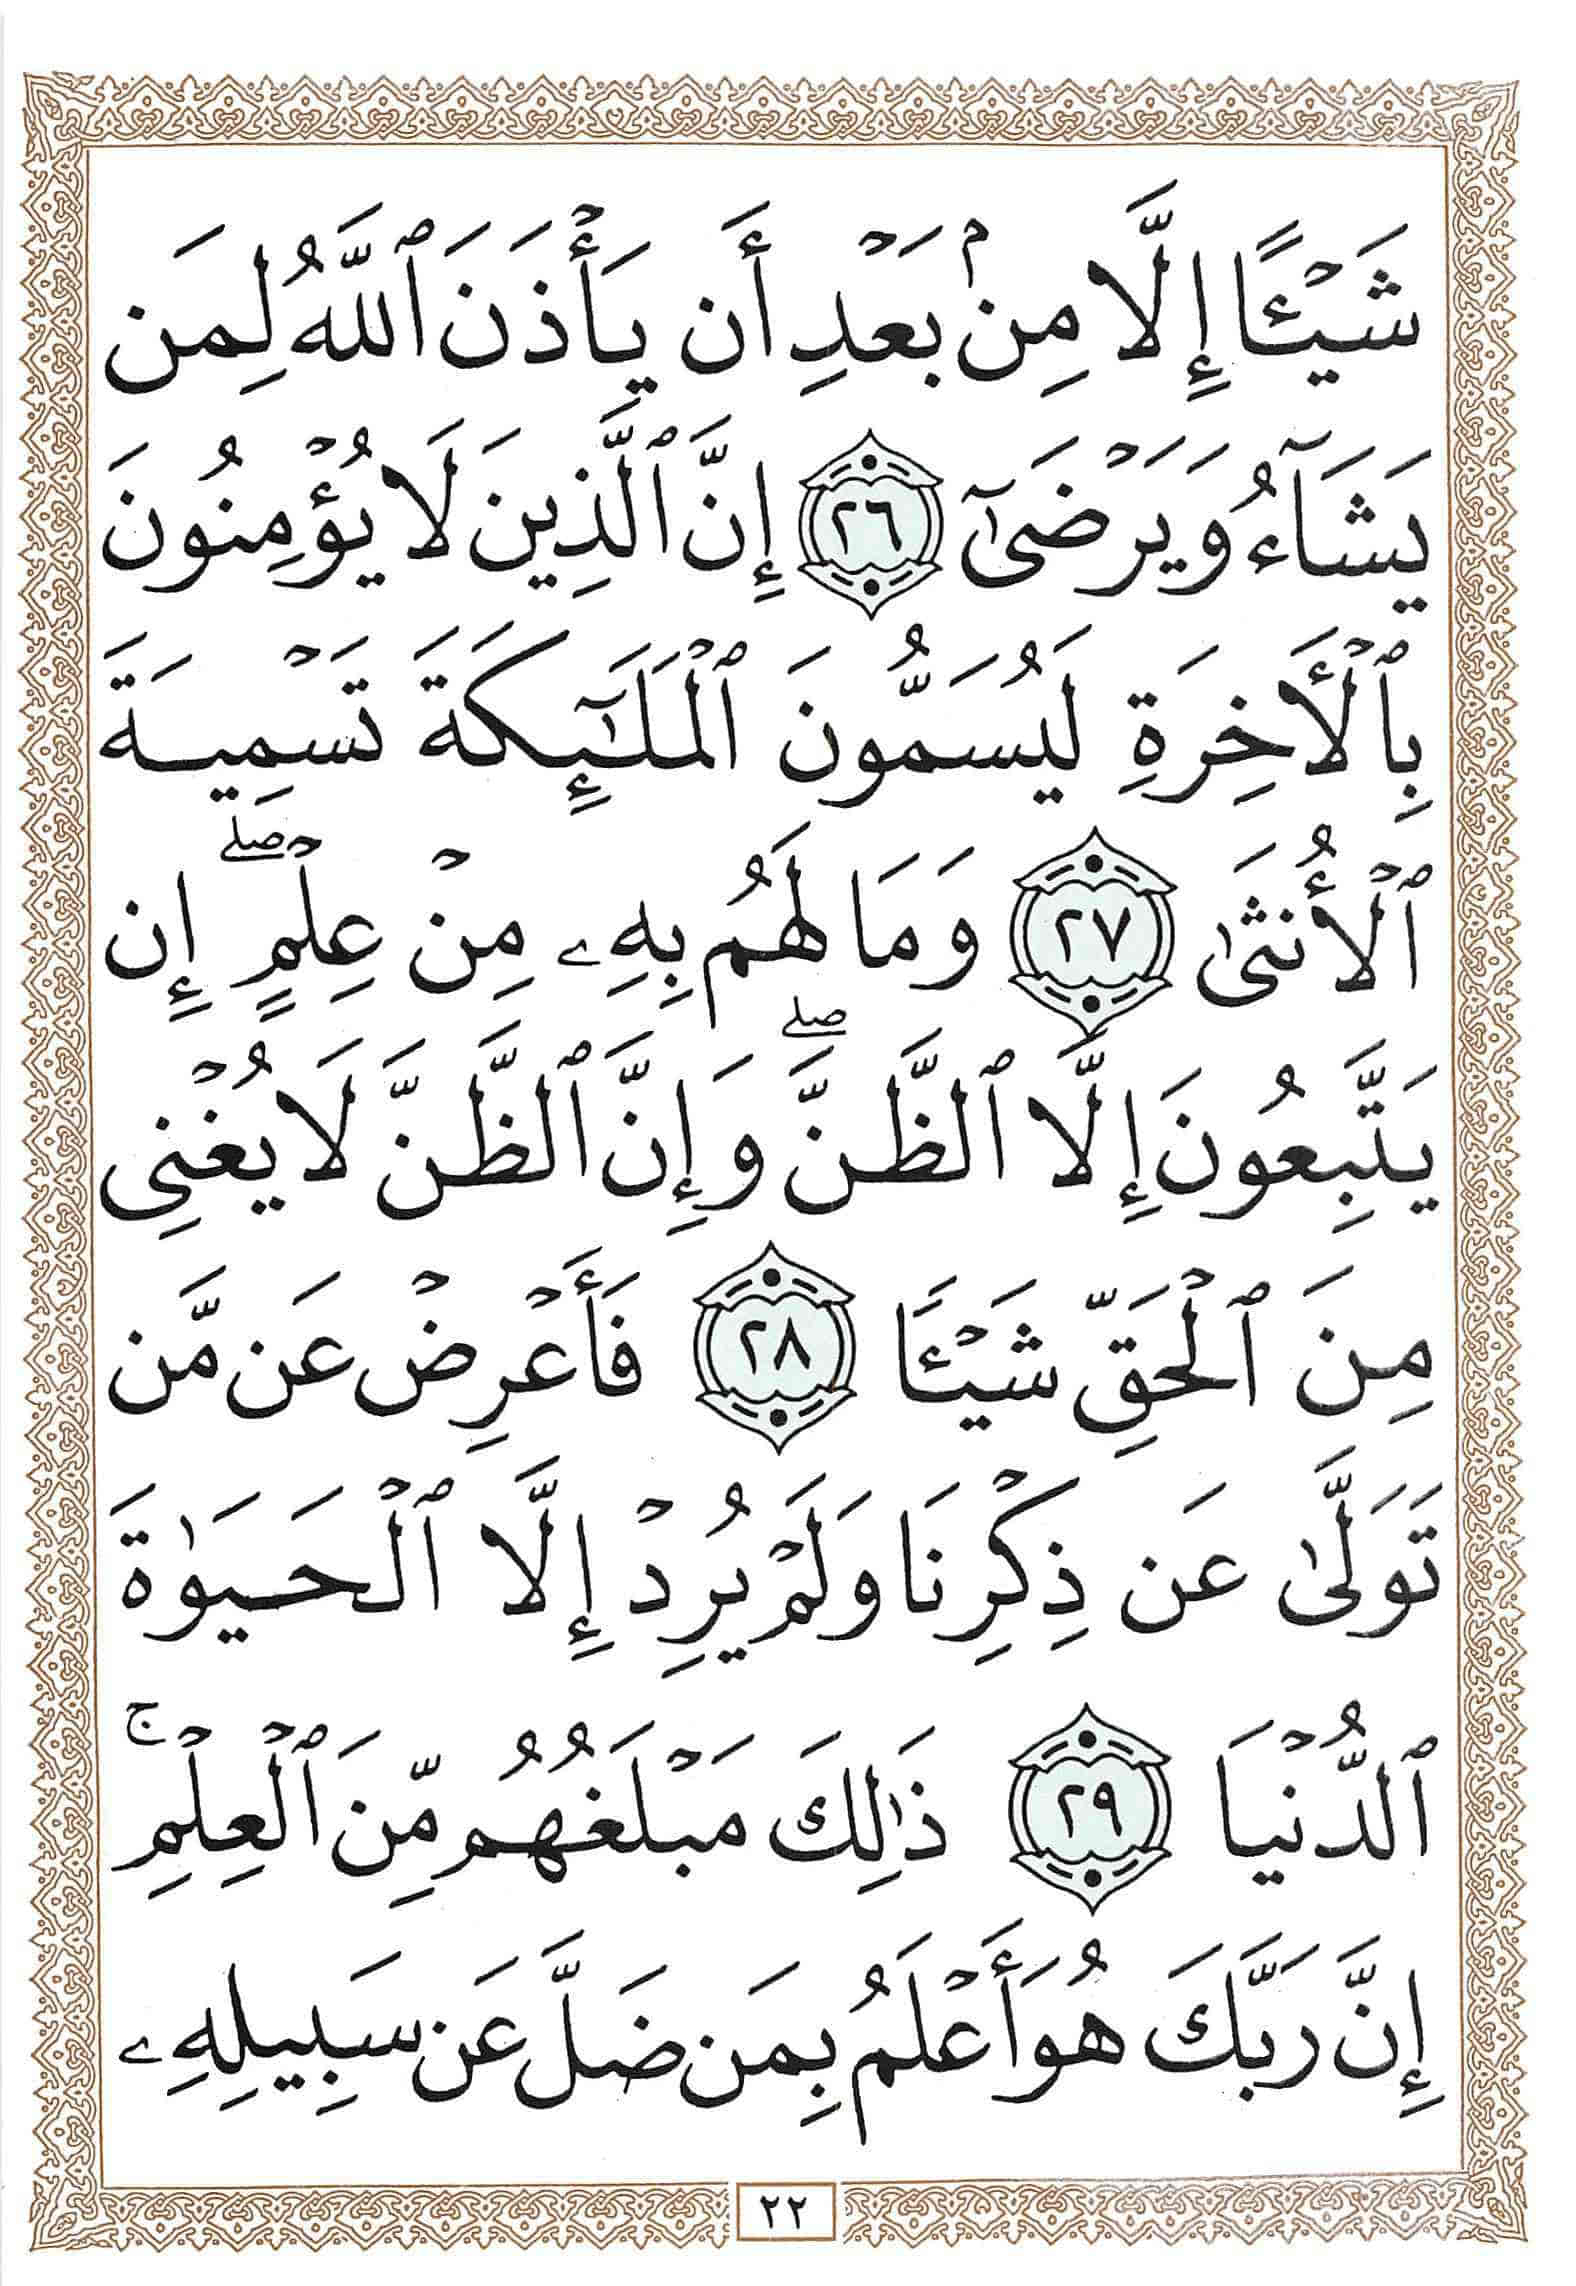 شَيْـًٔا إِلَّا مِنۢ بَعْدِ أَن يَأْذَنَ ٱللَّهُ لِمَن
يَشَآءُ وَيَرْضَىٰٓ ٢٦ إِنَّ ٱلَّذِينَ لَا يُؤْمِنُونَ
بِٱلْأَخِرَةِ لَيُسَمُّونَ ٱلْمَلَـٰٓئِكَةَ تَسْمِيَةَ
ٱلْأُنثَىٰ ٢٧ وَمَا لَهُم بِهِۦ مِنْ عِلْمٍ ۖ إِن
يَتَّبِعُونَ إِلَّا ٱلظَّنَّ ۖ وَإِنَّ ٱلظَّنَّ لَا يُغْنِى
مِنَ ٱلْحَقِّ شَيْـًٔا ٢٨ فَأَعْرِضْ عَن مَّن
تَوَلَّىٰ عَن ذِكْرِنَا وَلَمْ يُرِدْ إِلَّا ٱلْحَيَوٰةَ
ٱلدُّنْيَا ٢٩ ذَٰلِكَ مَبْلَغُهُم مِّنَ ٱلْعِلْمِ ۚ
إِنَّ رَبَّكَ هُوَ أَعْلَمُ بِمَن ضَلَّ عَن سَبِيلِهِۦ
٢٢